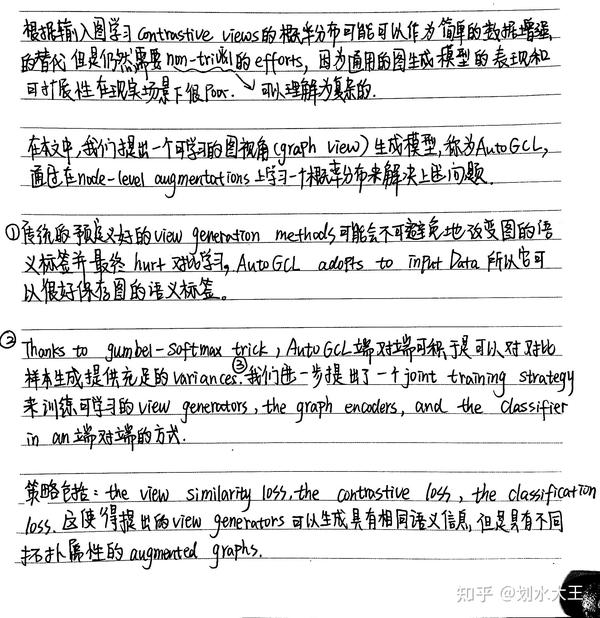 根据输入图学习 contrastive views的概率分布可能可以作为简单的数据增强
的替代 但是仍然需要 non-trivial的efforts, 因为通用的图生成模型的表现和
可扩展性在现实场景下很poor. 可以理解为复杂的.
在本文中,我们提出一个可学习的图视角(graph view)生成模型,称为AutoGCL,
通过在node-level augmentations上学习一个概率分布来解决上述问题.
①传统的预定义好的view generation methods可能会不可避免地改变图的语
义标签并最终 hurt 对比学习, AutoGCL adopts to input Data 所以它可
以很好保存图的语义标签。
② Thanks to gumbel-softmax trick, AutoGCL端对端可积于是可以对对比
样本生成提供充足的variances.③我们进一步提出了一个joint training strategy
来训练可学习的view generators, the graph encoders, and the classifier
in an 端对端的方式.
策略包括: the view similarity loss, the contrastive loss, the classification
loss. 这使得提出的view generators 可以生成具有相同语义信息,但是具有不同
拓扑属性的augmented graphs.
知乎 @划水大王